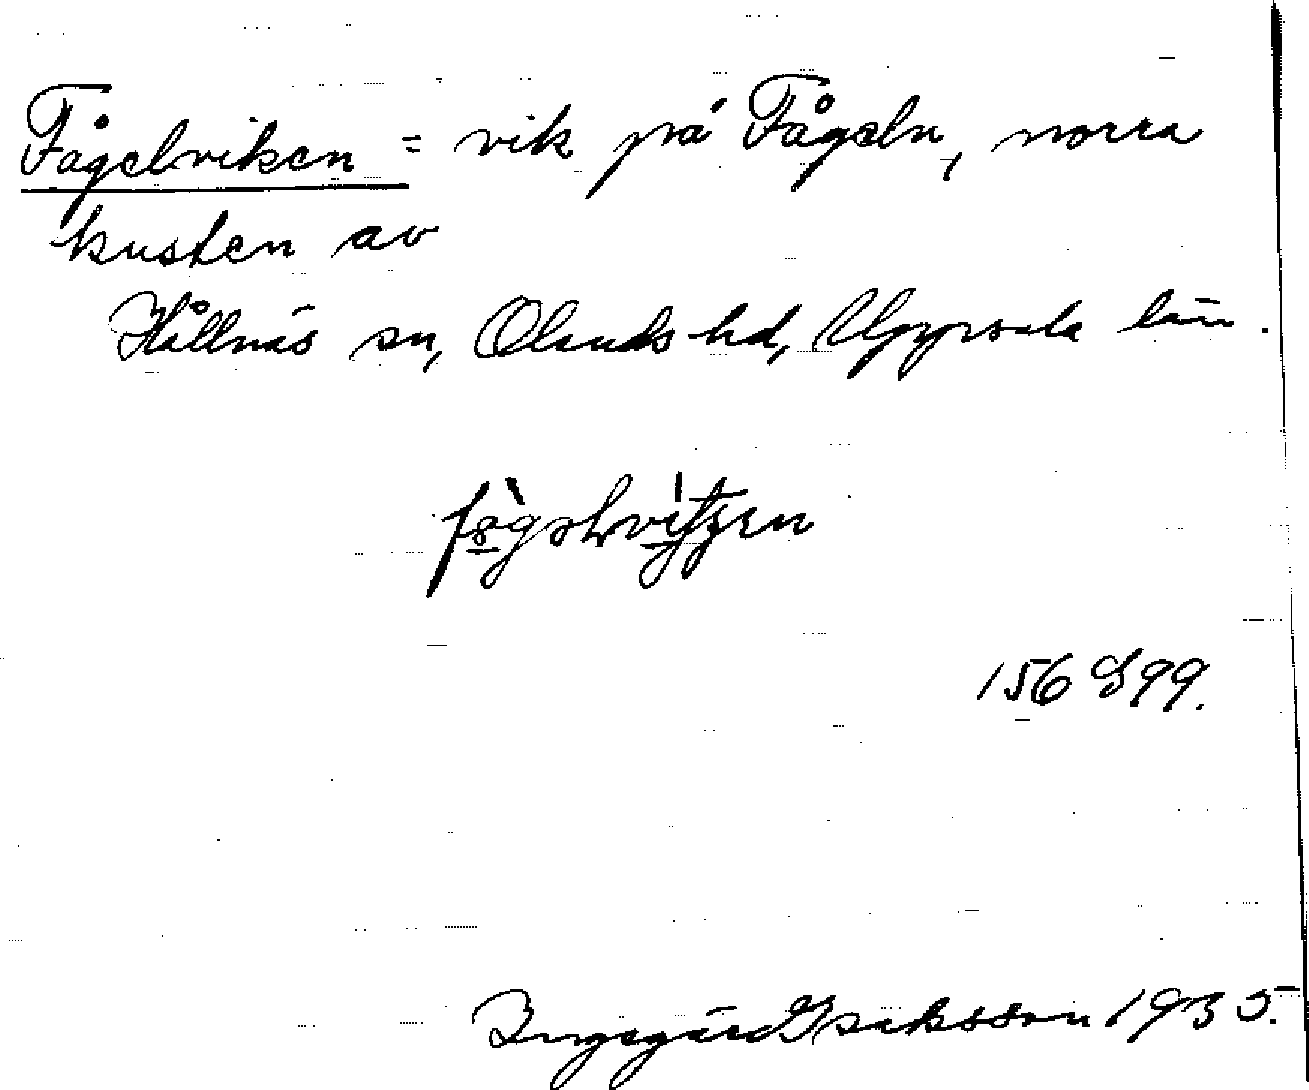 Fågelviken = vik på Fågeln, norra
kusten av
Hållnäs sn, Olands hd, Uppsala län.
156 S 99.
Ingegärd Isaksson 1935.